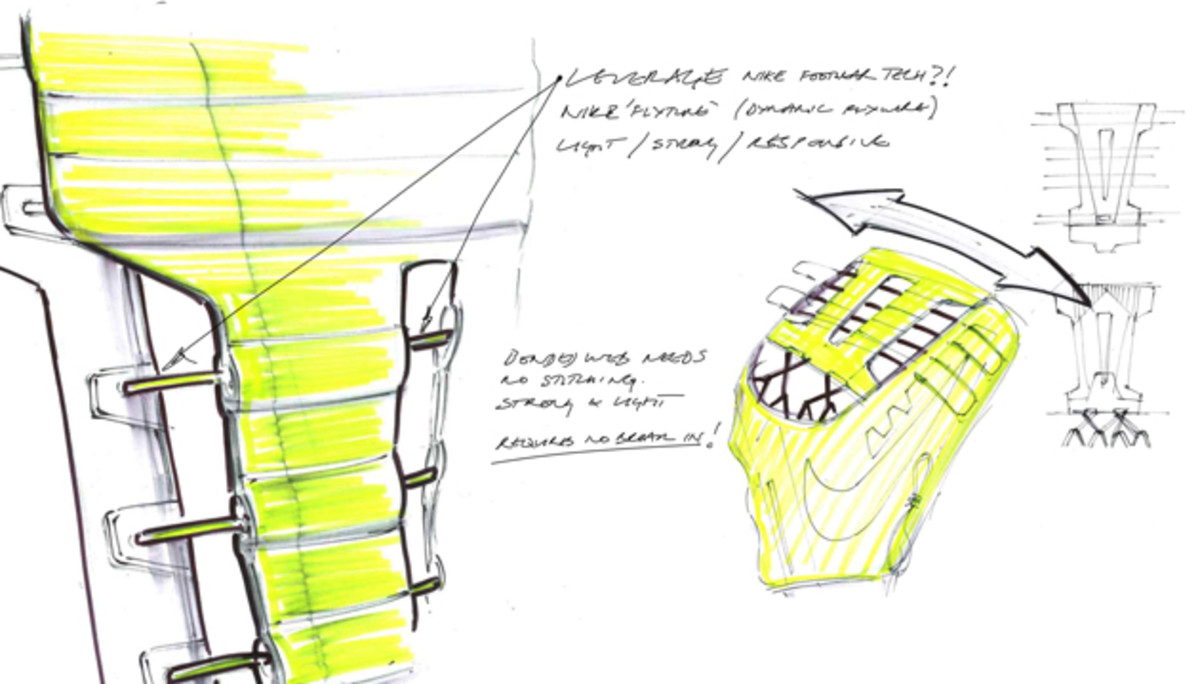 LEVERAGE NIKE FOOTWEAR TECH?!
NIKE 'FLYTONG' (DYNAMIC FLYWIRE)
LIGHT / STRONG / RESPONSIVE
BONDED WEB NEEDS
NO STITCHING.
STRONG & LIGHT
REQUIRES NO BREAK IN!